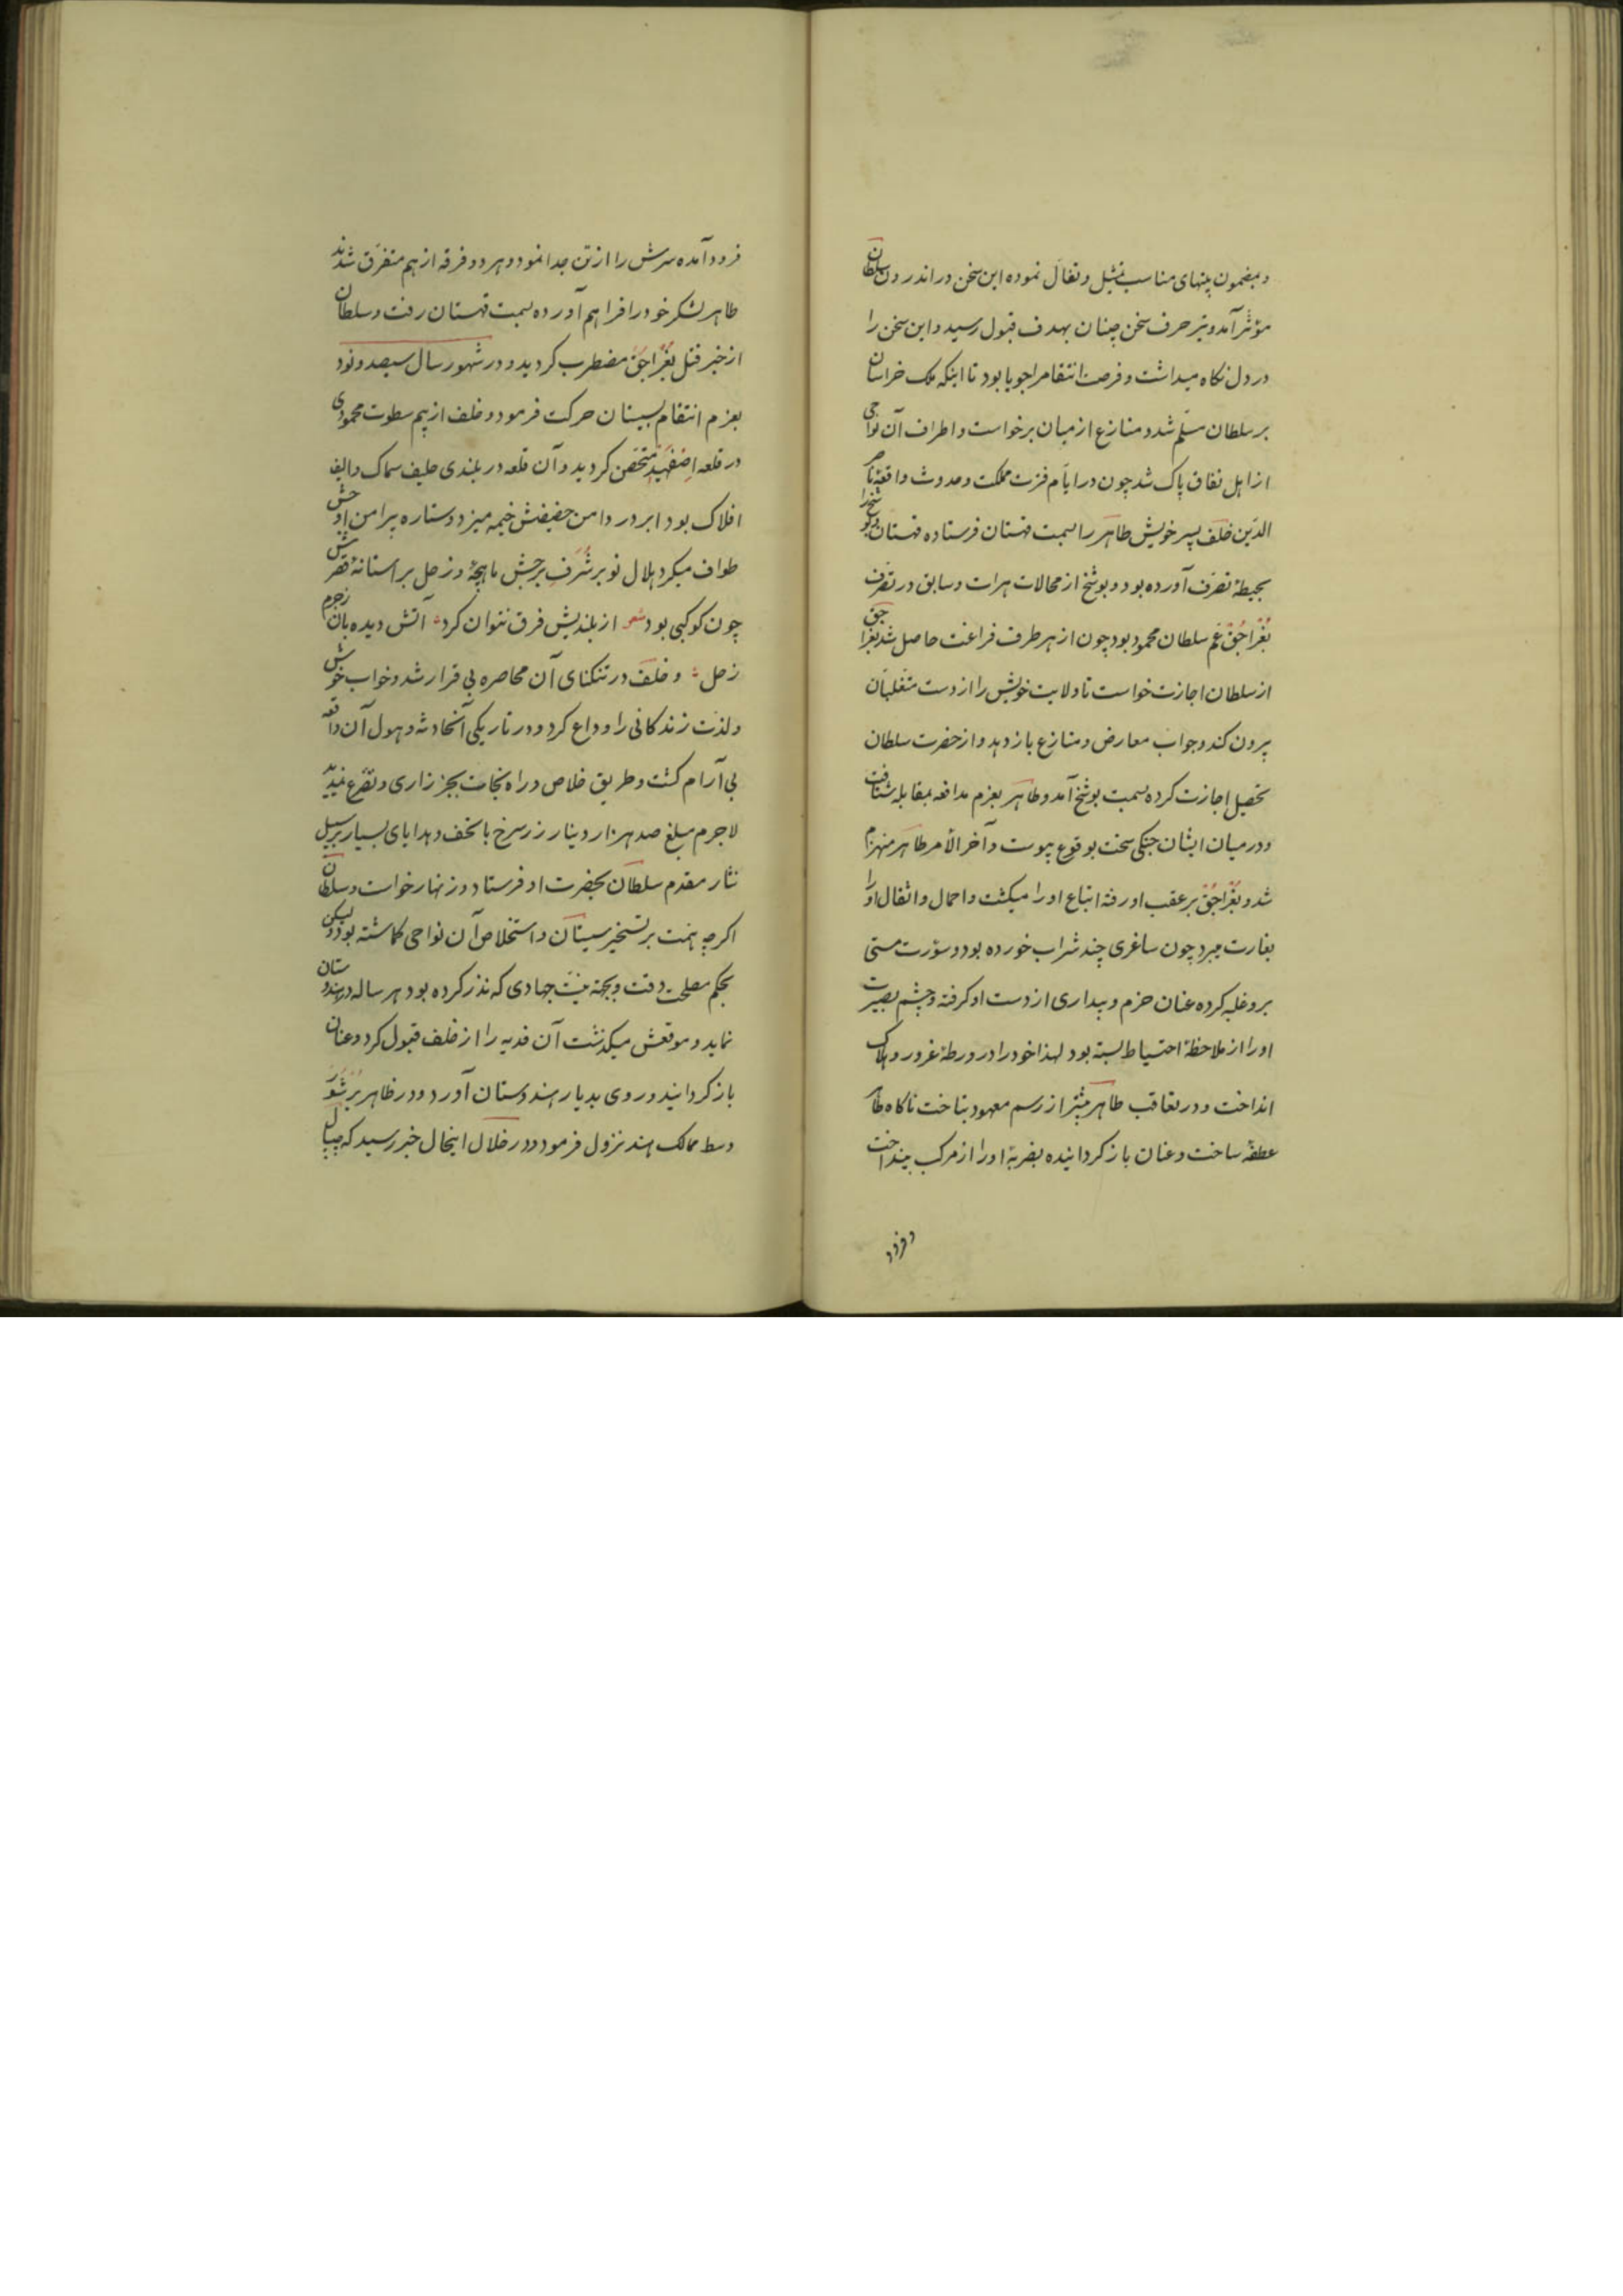 و بمضمون بیتهای مناسب تمثیل و تفأل نموده این سخن در اندرون سلطان
مؤثر آمد و تیر حرف سخن چینان بهدف قبول رسید و این سخن را
در دل نگاه میداشت و فرصت انتقام را جویا بود تا اینکه ملک خراسان
بر سلطان مسلّم شد و منازع از میان برخواست و اطراف آن نواحی
از اهل نفاق پاک شد چون در ایام فترت مملکت و حدوث واقعۀ ناصر
الدین خلف پسر خویش طاهر را بسمت قهستان فرستاده قهستان و بوشنج را
بحیطۀ تصرف آورده بود و بوشنج از محالات هرات و سابق در تصرف
بغراجق عم سلطان محمود بود چون از هر طرف فراغت حاصل شد بغراجق
از سلطان اجازت خواست تا ولایت خویش را از دست متغلبان
بیرون کند و جواب معارض و منازع باز دهد و از حضرت سلطان
تحصیل اجازت کرده بسمت بوشنج آمد و طاهر بعزم مدافعه بمقابله شتافت
و در میان ایشان جنگی سخت بوقوع پیوست و آخر الامر طاهر منهزم
شد و بغراجق بر عقب او رفته اتباع او را میکشت و احمال و اثقال او را
بغارت میبرد چون ساغری چند شراب خورده بود و سورت مستی
برو غلبه کرده عنان حزم و بیداری از دست او گرفته و چشم بصیرت
او را از ملاحظۀ احتیاط بسته بود لهذا خود را در ورطۀ غرور و هلاک
انداخت و در تعاقب طاهر بیشتر از رسم معهود بتاخت ناگاه طاهر
عطفۀ ساخت و عنان باز گردانیده بضربۀ او را از مرکب بینداخت
و فرود
فرود آمده سرش را از تن جدا نمود و هر دو فرقه از هم متفرق شدند
طاهر لشکر خود را فراهم آورده بسمت قهستان رفت و سلطان
از خبر قتل بغراجق مضطرب گردید و در شهور سال سیصد و نود
بعزم انتقام بسیستان حرکت فرمود و خلف از بیم سطوت محمودی
در قلعه اصفهبذ متحصن گردید و آن قلعه در بلندی حلیف سماک و الیف
افلاک بود ابر در دامن حضیضش خیمه میزد و ستاره پیرامن اوجش
طواف میکرد هلال نو بر شرف برجش ماهچۀ و زحل بر آستانۀ قصرش
چون کوکبی بود شعر از بلندیش فرق نتوان کرد آتش دیده بان ز جرم
زحل و خلف در تنگنای آن محاصره بی قرار شد و خواب خوش
و لذت زندگانی را وداع کرد و در تاریکی آنحادثه و هول آن واقعه
بی آرام گشت و طریق خلاص و راه نجات بجز زاری و تضرع ندید
لاجرم مبلغ صد هزار دینار زر سرخ با تحف و هدایای بسیار بر سبیل
نثار مقدم سلطان بحضرت او فرستاد و زنهار خواست و سلطان
اگرچه همت بر تسخیر سیستان و استخلاص آن نواحی گماشته بود و لیکن
بحکم مصلحت وقت و بجهة نیت جهادی که نذر کرده بود هر ساله در هندوستان
نماید و موقعش میگذشت آن فدیه را از خلف قبول کرد و عنان
باز گردانید و روی بدیار هندوستان آورد و در ظاهر برشور
وسط ممالک هند نزول فرمود و در خلال اینحال خبر رسید که جیپال